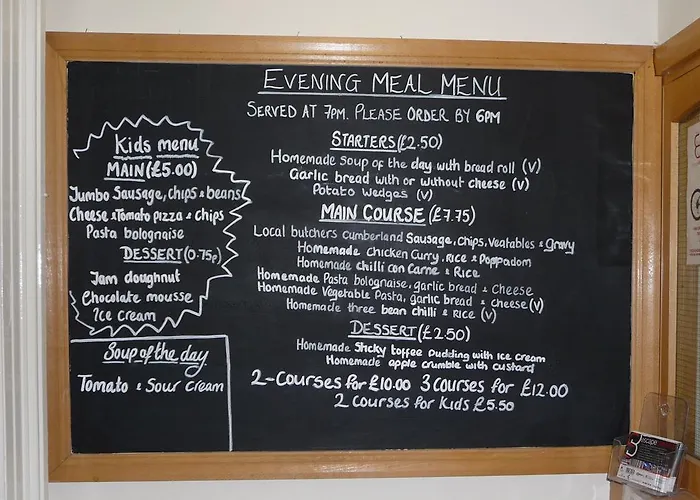 EVENING MEAL MENU
SERVED AT 7PM. PLEASE ORDER BY 6PM
STARTERS (£2.50)
Homemade soup of the day with bread roll (V)
Garlic bread with or without cheese (V)
Potato wedges (V)
MAIN COURSE (£7.75)
Local butchers cumberland Sausage, chips, Veatables & gravy
Homemade Chicken Curry, Rice & Poppadom
Homemade chilli con Carne & Rice
Homemade Pasta bolognaise, garlic bread & cheese
Homemade Vegetable Pasta, garlic bread & cheese (V)
Homemade three bean chilli & Rice (V)
DESSERT (£2.50)
Homemade Sticky toffee pudding with ice cream
Homemade apple crumble with custard
2-Courses for £10.00 3 courses for £12.00
2 courses for Kids £5.50
Kids menu
MAIN (£5.00)
Jumbo Sausage, chips & beans
Cheese & Tomato pizza & chips
Pasta bolognaise
DESSERT (0.75p)
Jam doughnut
Chocolate mousse
Ice cream
Soup of the day
Tomato & Sour cream